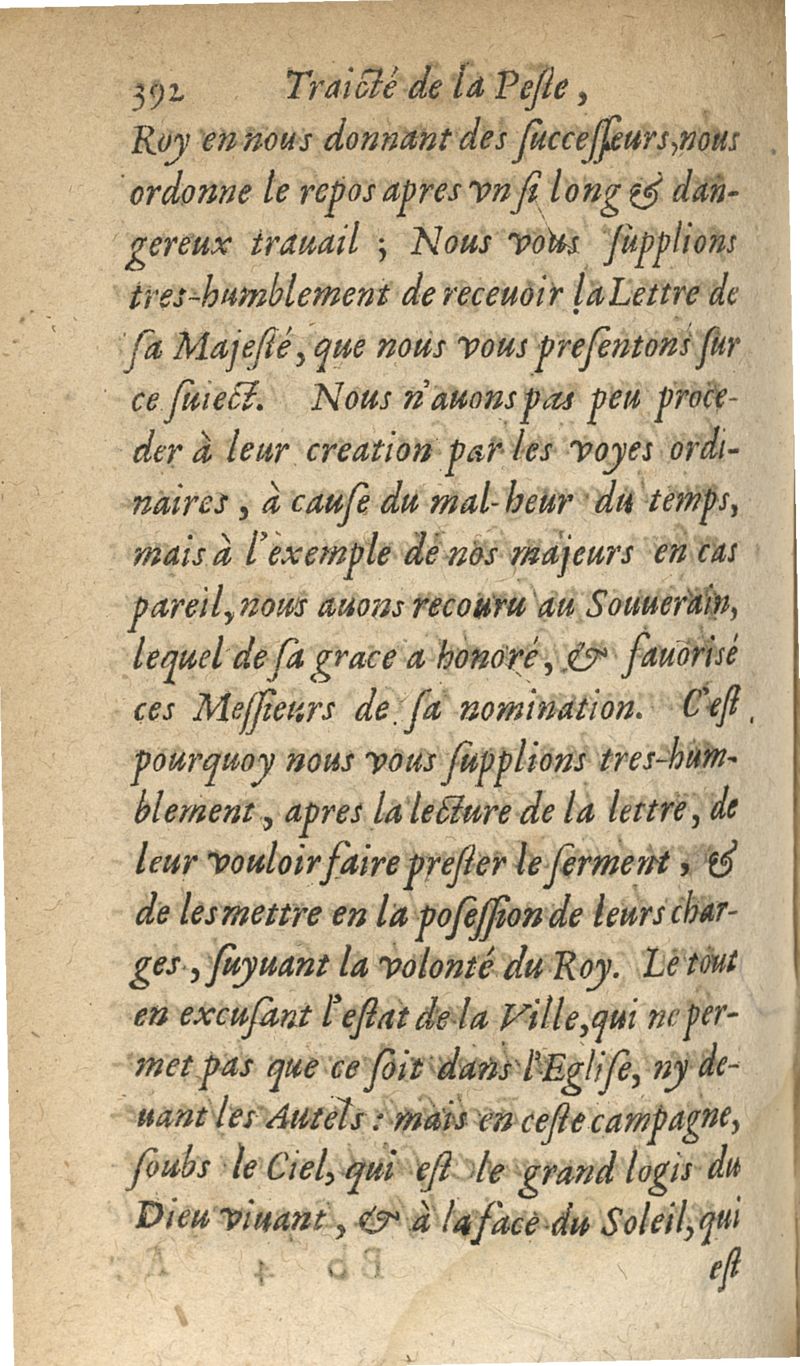 392 Traicté de la Peſte,
Roy en nous donnant des ſucceſſeurs, nous
ordonne le repos apres vn ſi long & dan-
gereux trauail ; Nous vous ſupplions
tres-humblement de receuoir la Lettre de
ſa Majeſté, que nous vous preſentons ſur
ce ſuiect. Nous n'auons pas peu proce-
der à leur creation par les voyes ordi-
naires, à cauſe du mal-heur du temps,
mais à l'exemple de nos majeurs en cas
pareil, nous auons recouru au Souuerain,
lequel de ſa grace a honoré, & fauorisé
ces Meſſieurs de ſa nomination. C'eſt
pourquoy nous vous ſupplions tres-hum-
blement, apres la lecture de la lettre, de
leur vouloir faire preſter le ſerment, &
de les mettre en la poſeſſion de leurs char-
ges, ſuyuant la volonté du Roy. Le tout
en excuſant l'eſtat de la Ville, qui ne per-
met pas que ce ſoit dans l'Egliſe, ny de-
uant les Autels : mais en ceſte campagne,
ſoubs le Ciel, qui eſt le grand logis du
Dieu viuant, & à la face du Soleil, qui
eſt